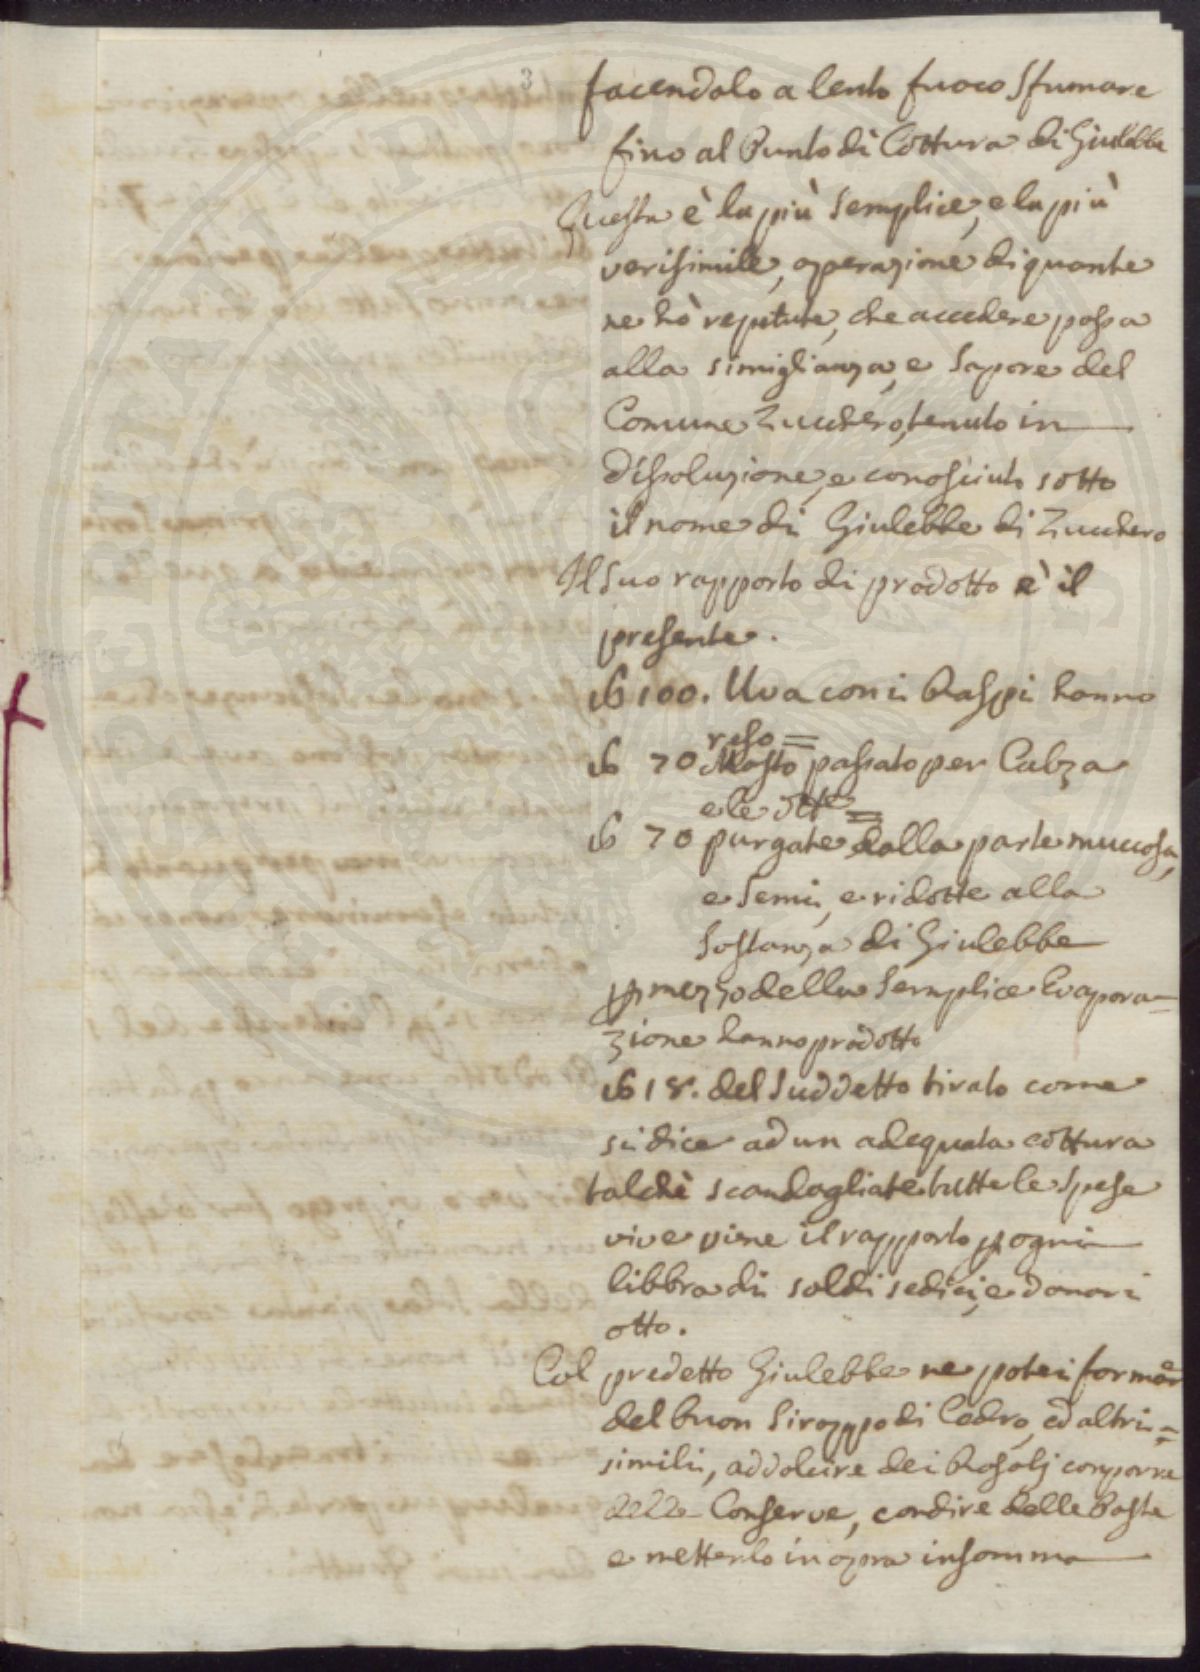 3
facendolo a lento fuoco sfumare
fino al Punto di Cottura di Giulebbe
Questa è la più semplice, e la più
verisimile, operazione di quante
ne hò reputate, che accedere possa
alla simiglianza, e sapore del
Comune Zucchero, tenuto in
dissoluzione, e conosciuto sotto
il nome di Giulebbe di Zucchero
Il suo rapporto di prodotto è il
presente.
lb 100. Uva con i Raspi hanno
reso =
lb 70 Mosto passato per Calza
e le dette =
lb 70 purgate dalla parte muccosa,
e semi, e ridotte alla
sostanza di Giulebbe
p mezzo della semplice Evapora=
zione hanno prodotto
lb 18. del suddetto tirato come
si dice ad un adequata cottura
talchè scandagliate tutte le spese
vive viene il rapporto p ogni
libbra di soldi sedici, e denari
otto.
Col predetto Giulebbe ne potei formare
del buon Siroppo di Cedro, ed altri=
simili, addolcire dei Rosolj comporre
delle Conserve, condire delle Paste
e metterlo in opra insomma